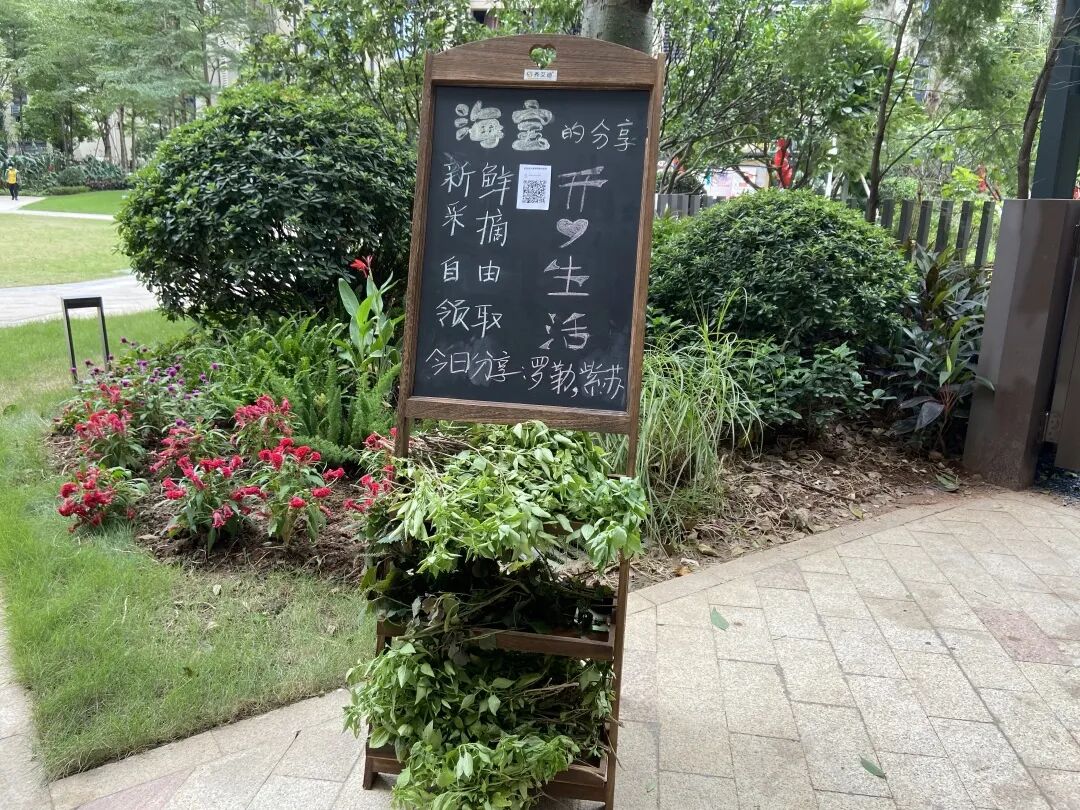 海宝的分享
新鲜
采摘
自由
领取
开
心
生
活
今日分享:罗勒,紫苏